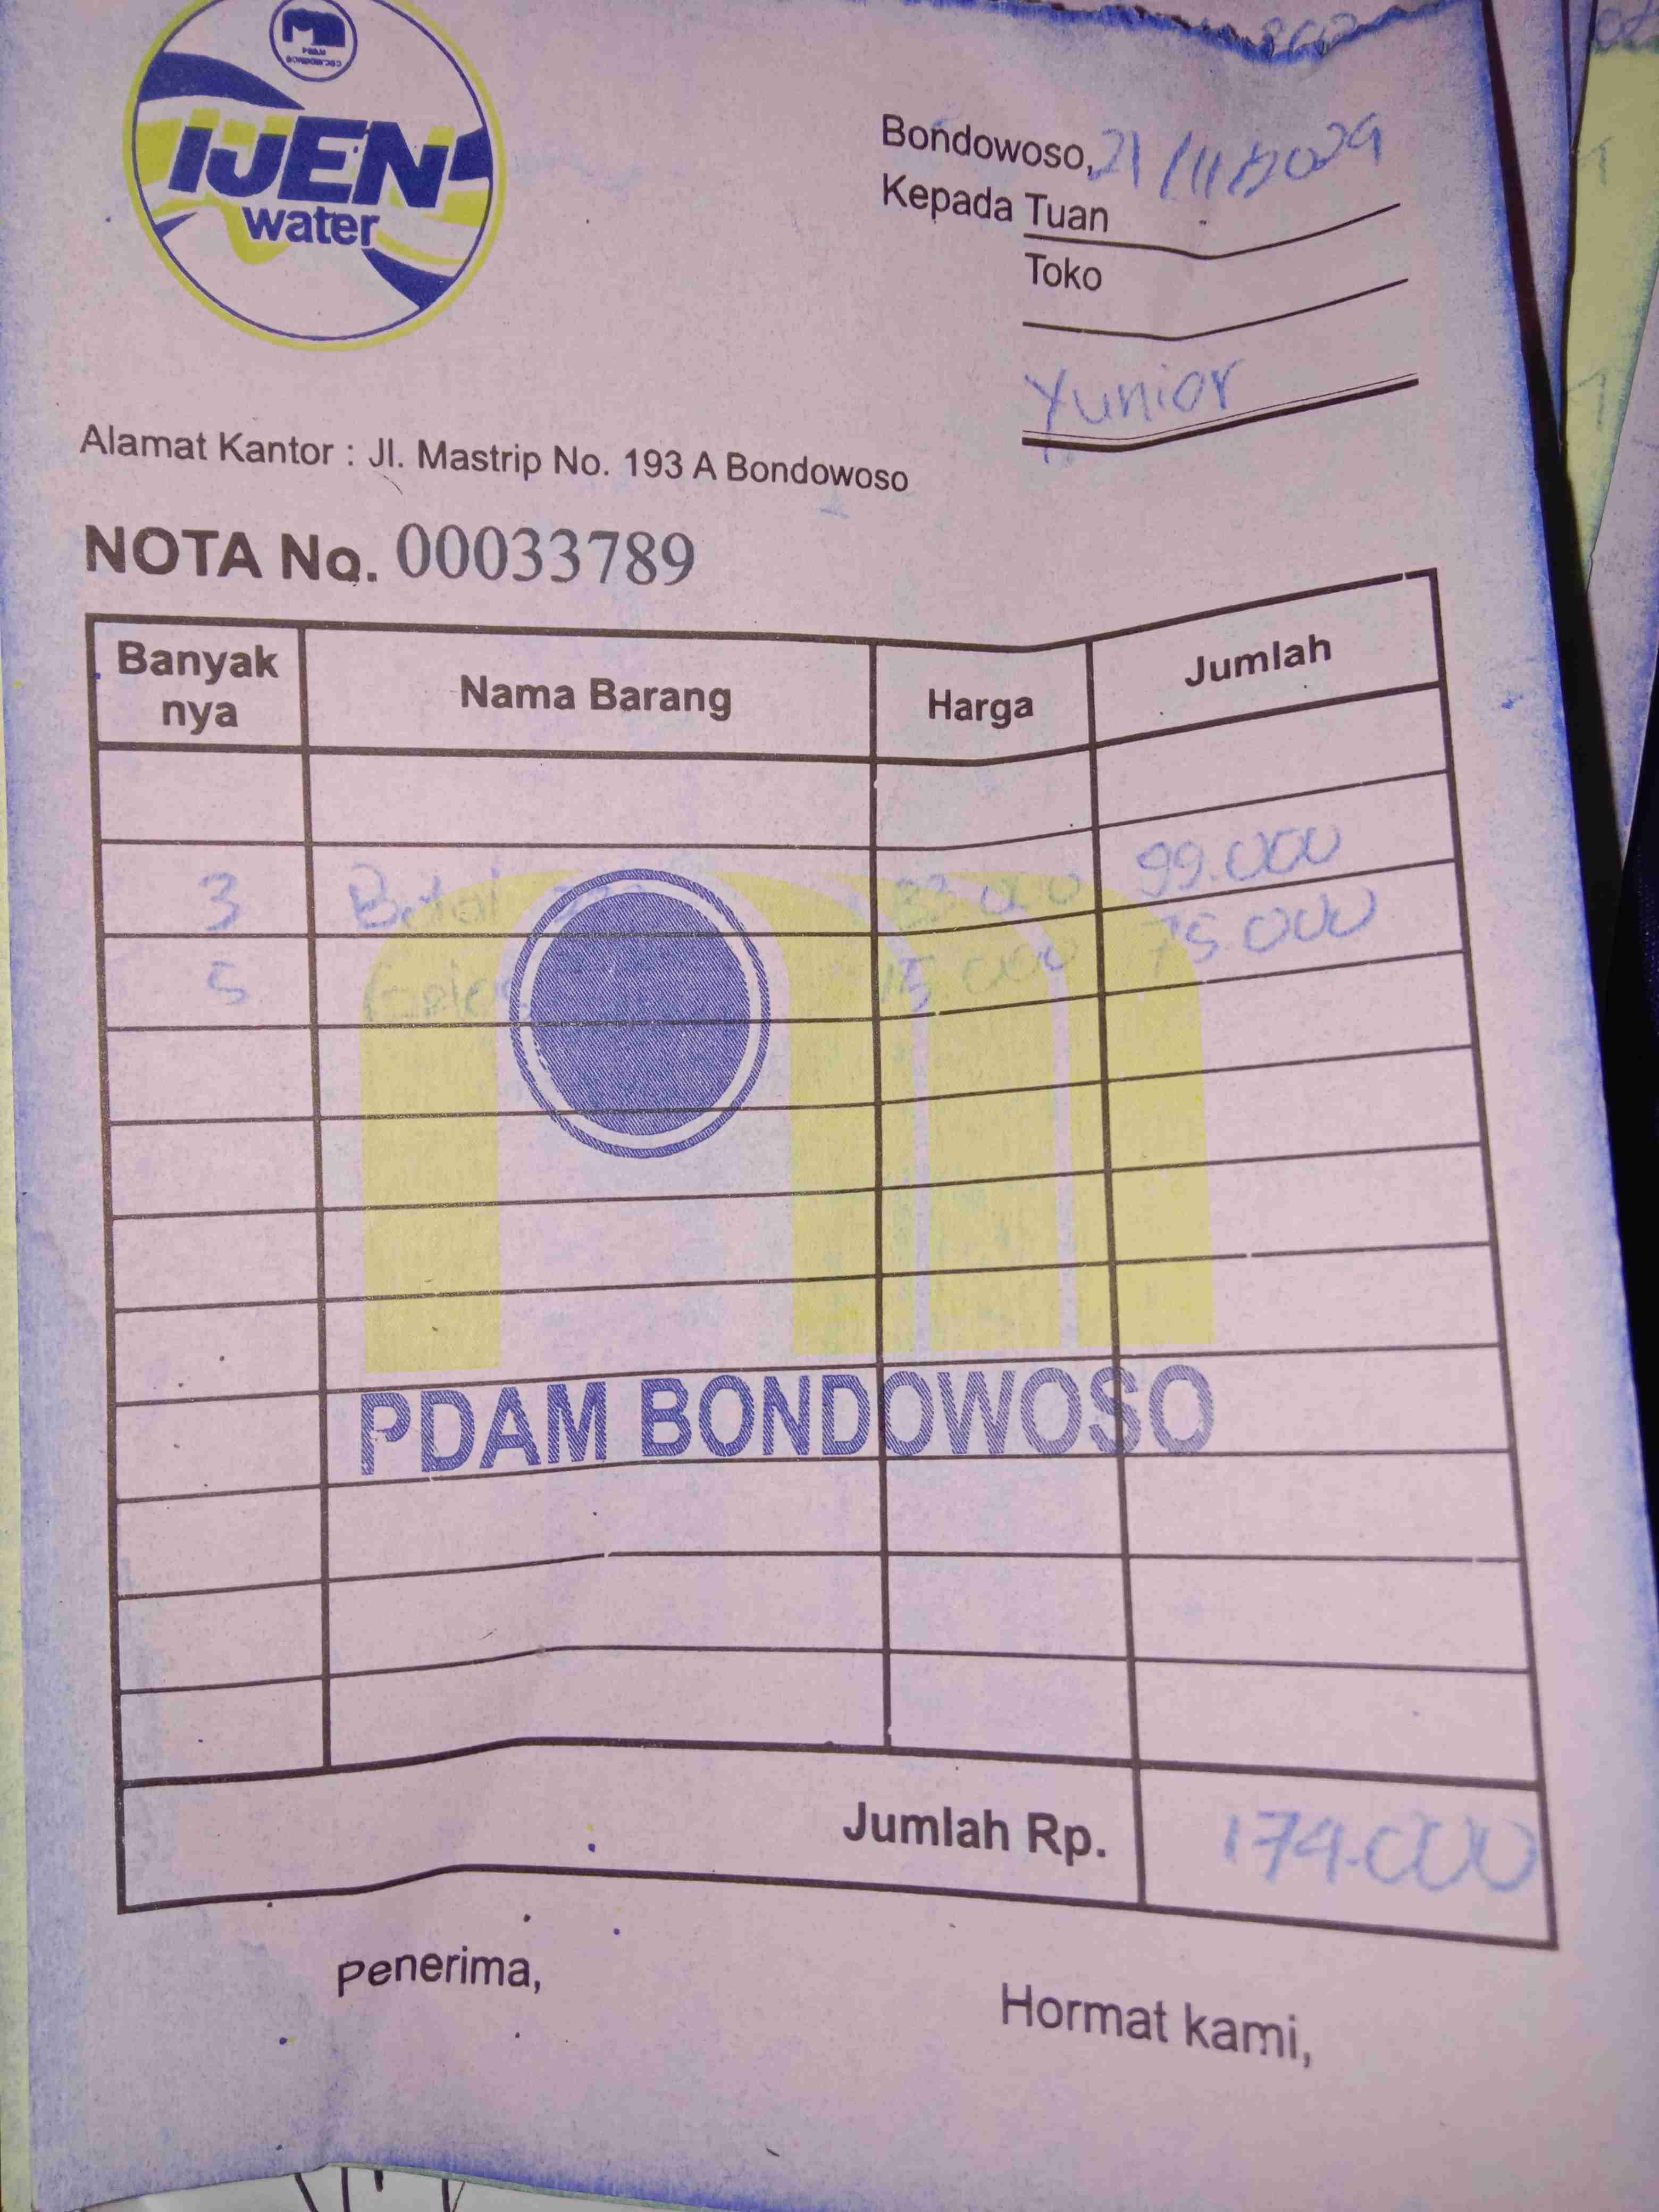 PDAM
BONDOWOSO
IJEN
water
Bondowoso, 21/11/2024
Kepada Tuan
Toko
Yunior
Alamat Kantor : Jl. Mastrip No. 193 A Bondowoso
NOTA No. 00033789
Banyak nya Nama Barang Harga Jumlah
3 Botol 33.000 99.000
5 15.000 75.000
PDAM BONDOWOSO
Jumlah Rp. 174.000
Penerima,
Hormat kami,